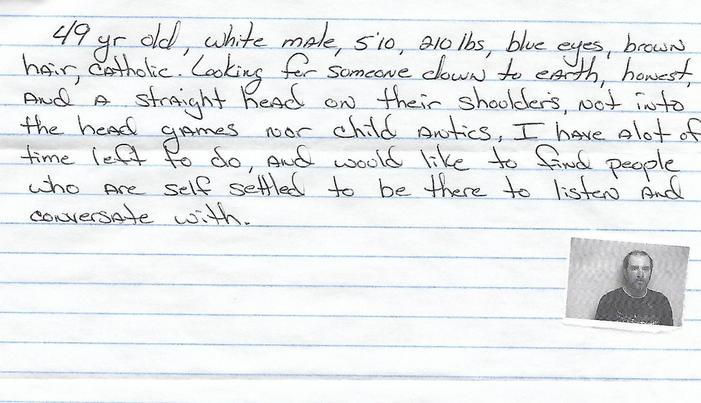 49 yr old, white male, 5'10, 210 lbs, blue eyes, brown
hair, Catholic. Looking for someone down to earth, honest,
and a straight head on their shoulders, not into
the head games nor child antics, I have alot of
time left to do, and would like to find people
who are self settled to be there to listen and
conversate with.